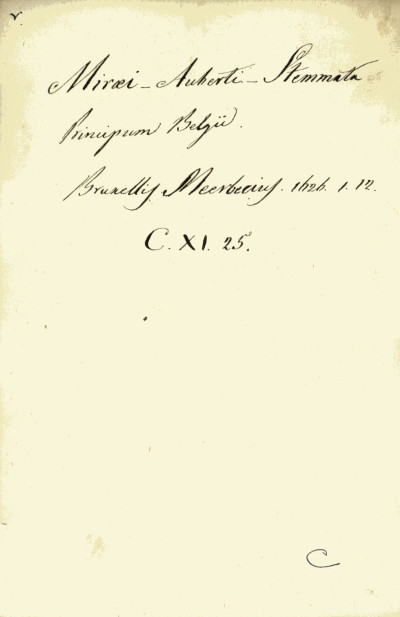 v.
Miræi - Auberti - Stemmata
Principum Belgii.
Bruxellis. Meerbecius. 1626. 1. 12.
C. XI. 25.
C